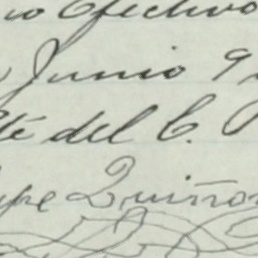 io Efectivo
Junio 9
té del C. P
upe Quiñon